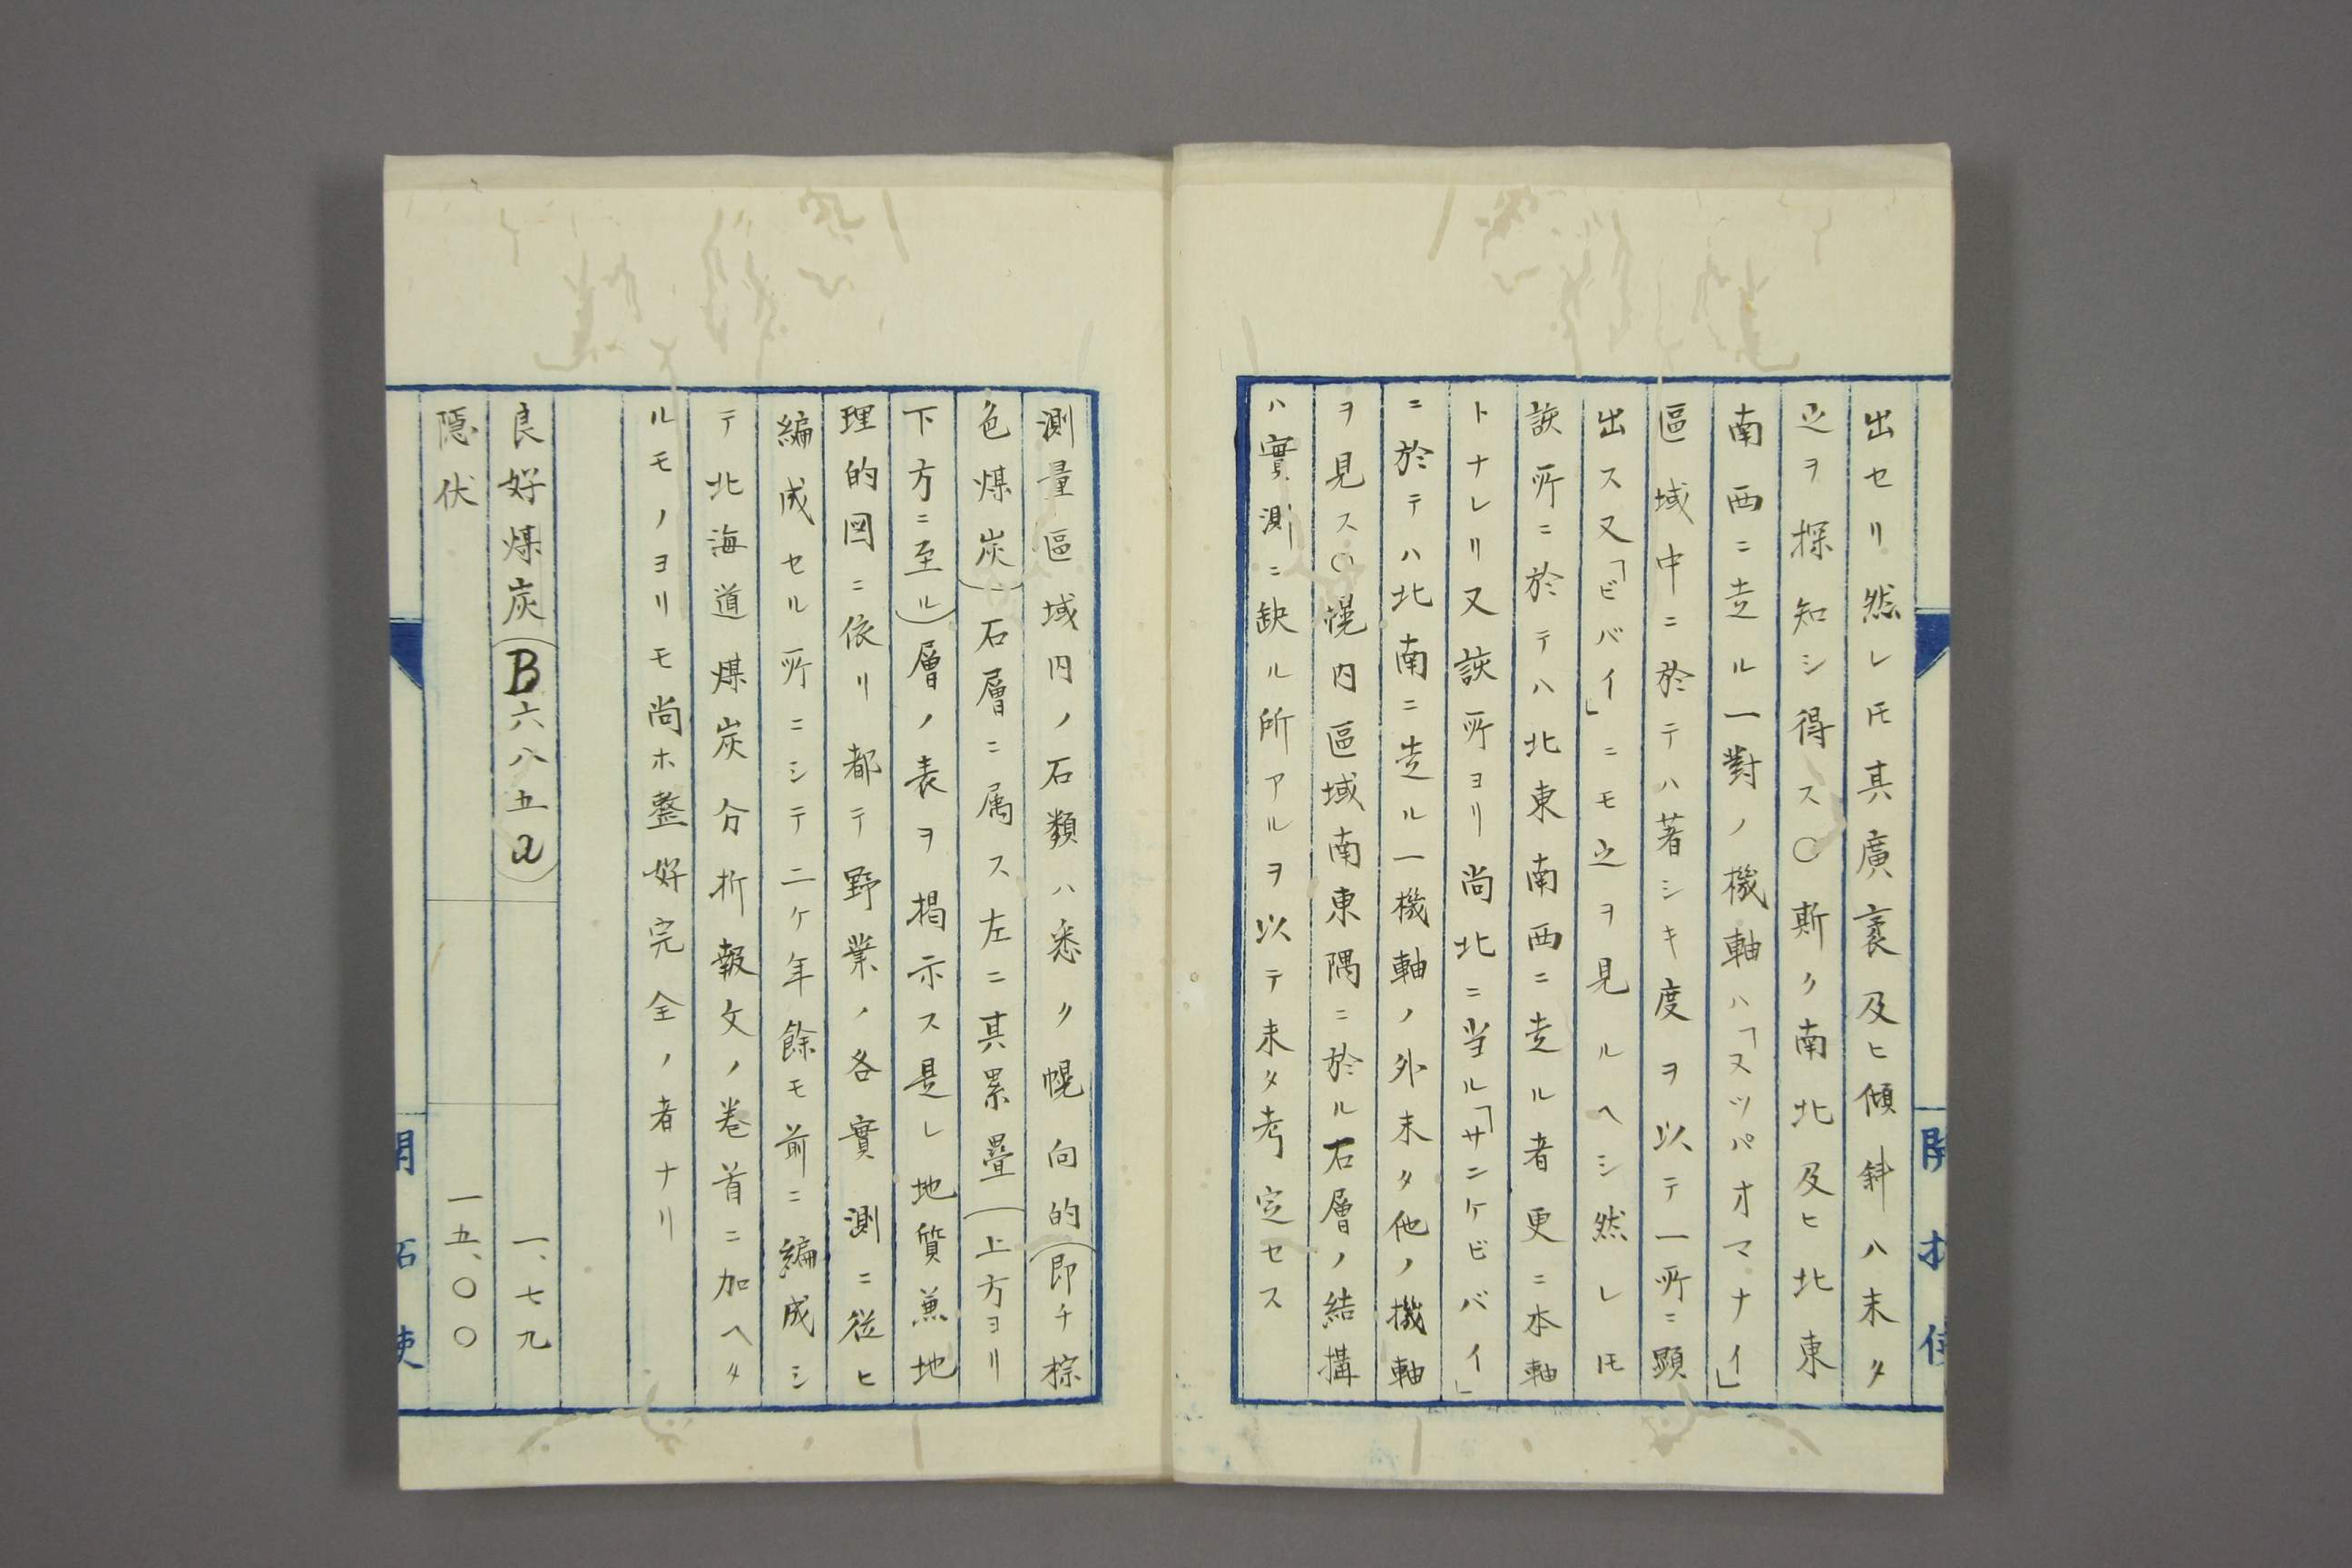 出セリ然レ𪜈其廣袤及ヒ傾斜ハ未タ
之ヲ探知シ得ス〇斯ク南北及ヒ北東
南西ニ走ル一對ノ機軸ハ「ヌツパオマナイ」
區域中ニ於テハ著シキ度ヲ以テ一所ニ顕
出ス又「ビバイ」ニモ之ヲ見ルヘシ然レ𪜈
該所ニ於テハ北東南西ニ走ル者更ニ本軸
トナレリ又該所ヨリ尚北ニ当ル「サンケビバイ」
ニ於テハ北南ニ走ル一機軸ノ外未タ他ノ機軸
ヲ見ス〇幌内區域南東隅ニ於ル石層ノ結搆
ハ實測ニ缺ル所アルヲ以テ未タ考定セス
開拓使
測量區域内ノ石類ハ悉ク幌向的(即チ棕
色煤炭)ニ石層ニ属ス左ニ其累疊(上方ヨリ
下方ニ至ル)層ノ表ヲ掲示ス是レ地質兼地
理的図ニ依リ都テ野業ノ各實測ニ從ヒ
編成セル所ニシテ二ケ年餘モ前ニ編成シ
テ北海道煤炭分析報文ノ巻首ニ加ヘタ
ルモノヨリモ尚ホ整好完全ノ者ナリ
良好煤炭(B六八五a) 一、七九
隠伏 一五、〇〇
開拓使